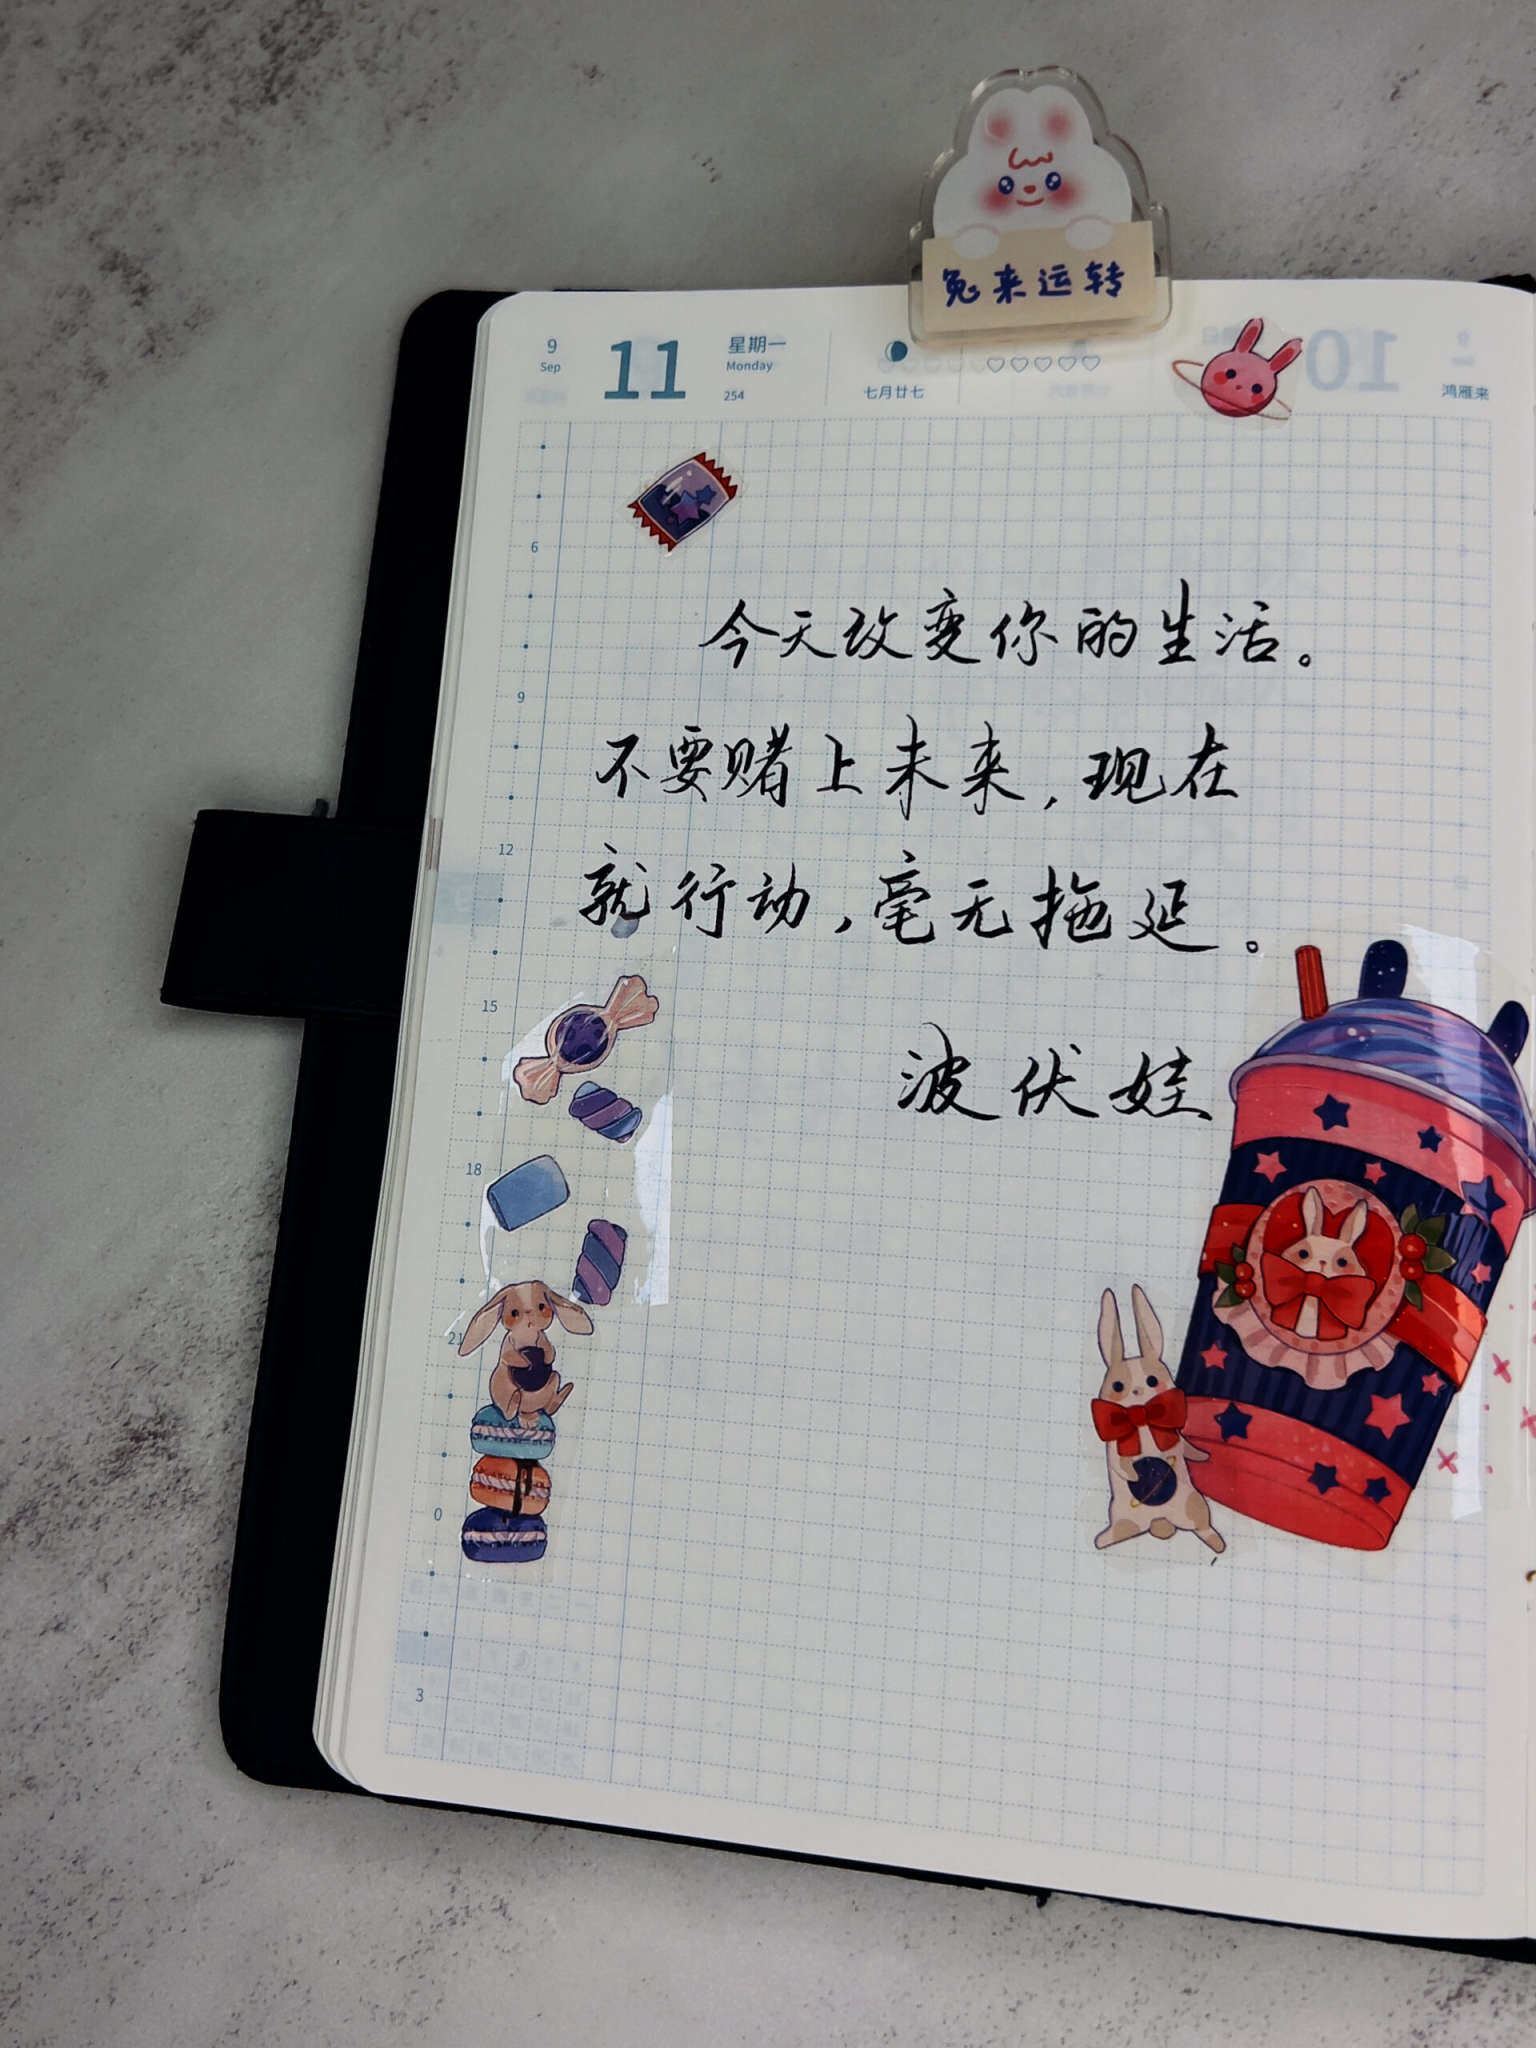 兔来运转
9 11 星期一
Sep Monday
254 七月廿七
鸿雁来
今天改变你的生活。
不要赌上未来,现在
就行动,毫无拖延。
波伏娃
6
9
12
15
18
21
0
3